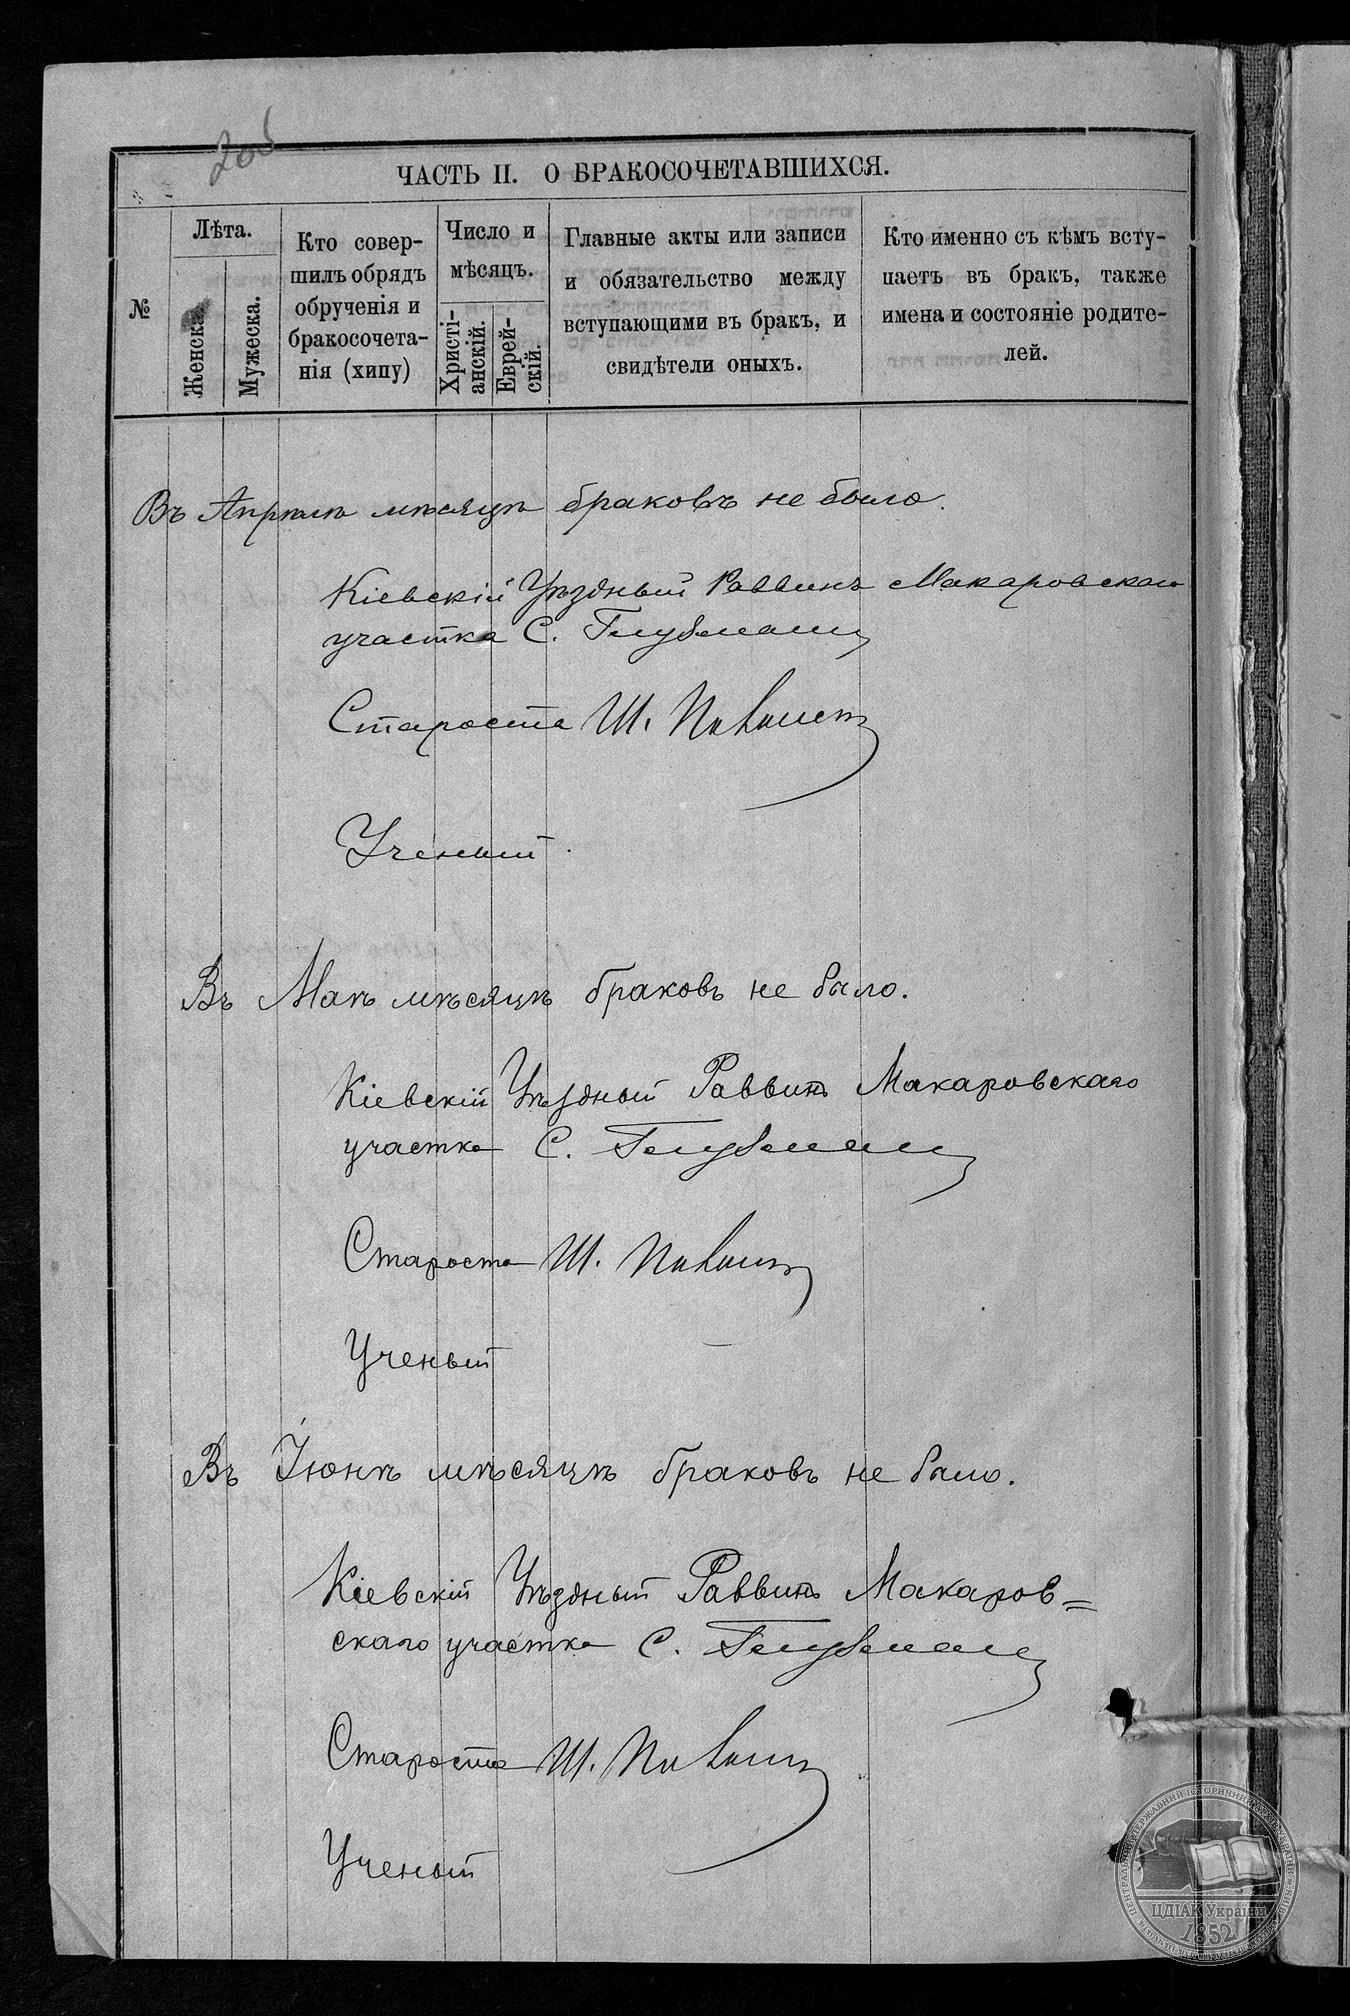 205
ЧАСТЬ II. О БРАКОСОЧЕТАВШИХСЯ.
№
Лѣта.
Женска.
Мужеска.
Кто совер-
шилъ обрядъ
обрученія и
бракосочета-
нія (хипу)
Число и
мѣсяцъ.
Христі-
анскій.
Еврей-
скій.
Главные акты или записи
и обязательство между
вступающими въ бракъ, и
свидѣтели оныхъ.
Кто именно съ кѣмъ всту-
паетъ въ бракъ, также
имена и состояніе родите-
лей.
Въ Апрѣлѣ мѣсяцѣ браковъ не было.
Кіевскій Уѣздный Раввинъ Макаровскаго
участка С.
Староста Ш.
Ученый
Въ Маѣ мѣсяцѣ браковъ не было.
Кіевскій Уѣздный Раввинъ Макаровскаго
участка С.
Староста Ш.
Ученый
Въ Іюнѣ мѣсяцѣ браковъ не было.
Кіевскій Уѣздный Раввинъ Макаров=
скаго участка С.
Староста Ш.
Ученый
ЦДІАК України
1852